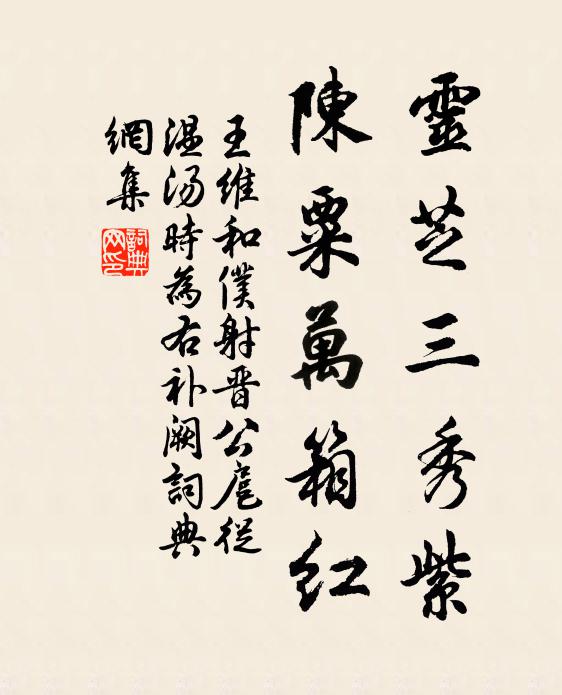 靈芝三秀紫
陳粟萬箱紅
王維和僕射晋公扈從
温汤時為右补阙詞典
網集
詞典
网印